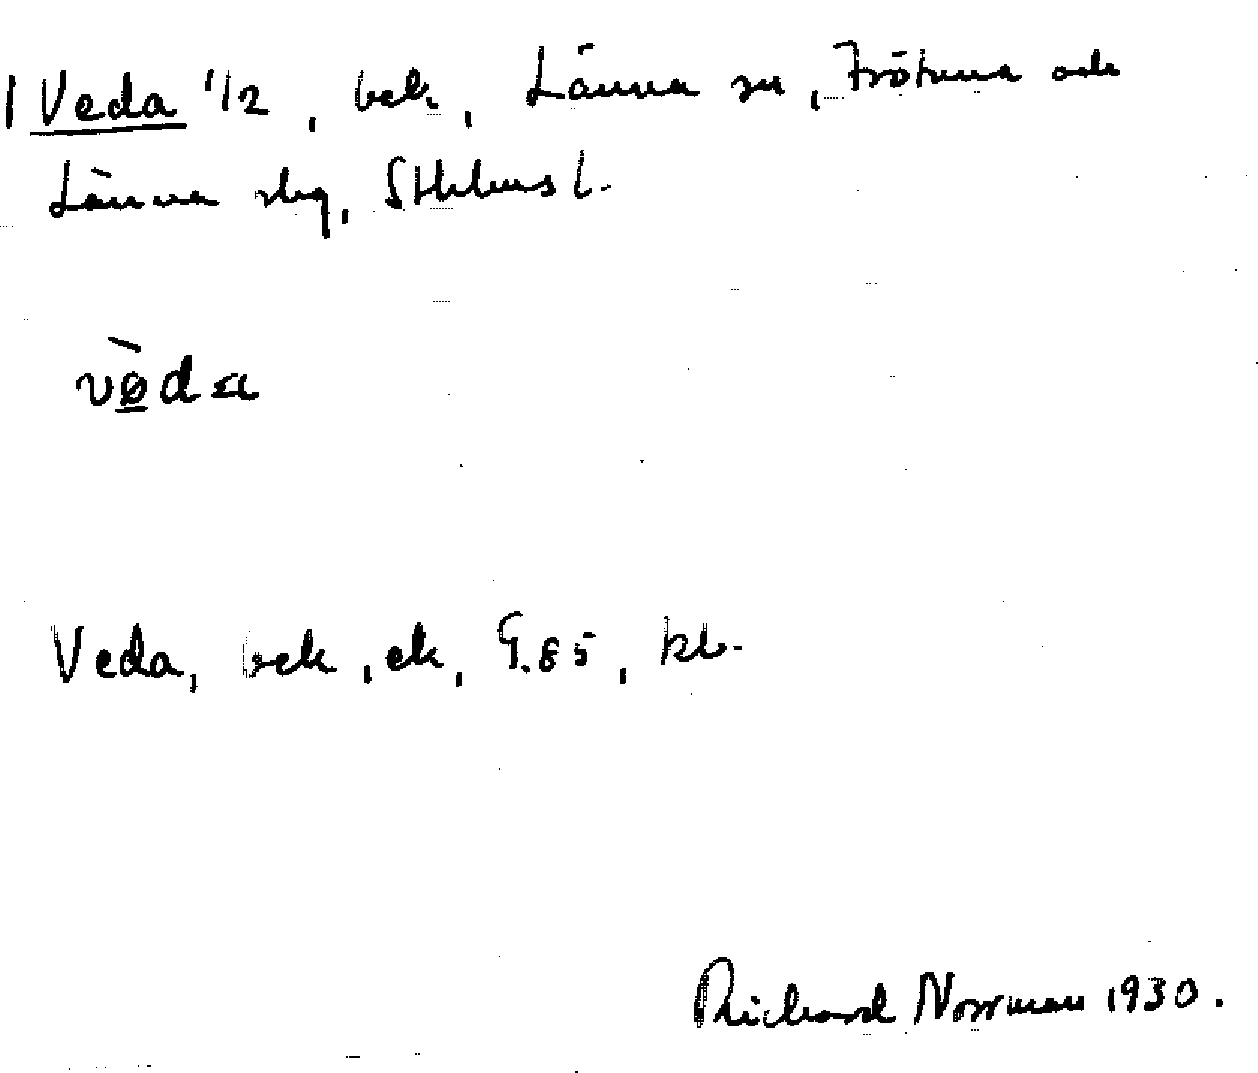 1 Veda 1/2, bek., Länna sn, Frötuna och
Länna skg, Sthlms l.
vø̀da
Veda, bek, ek, G.85, kb.
Richard Norrman 1930.